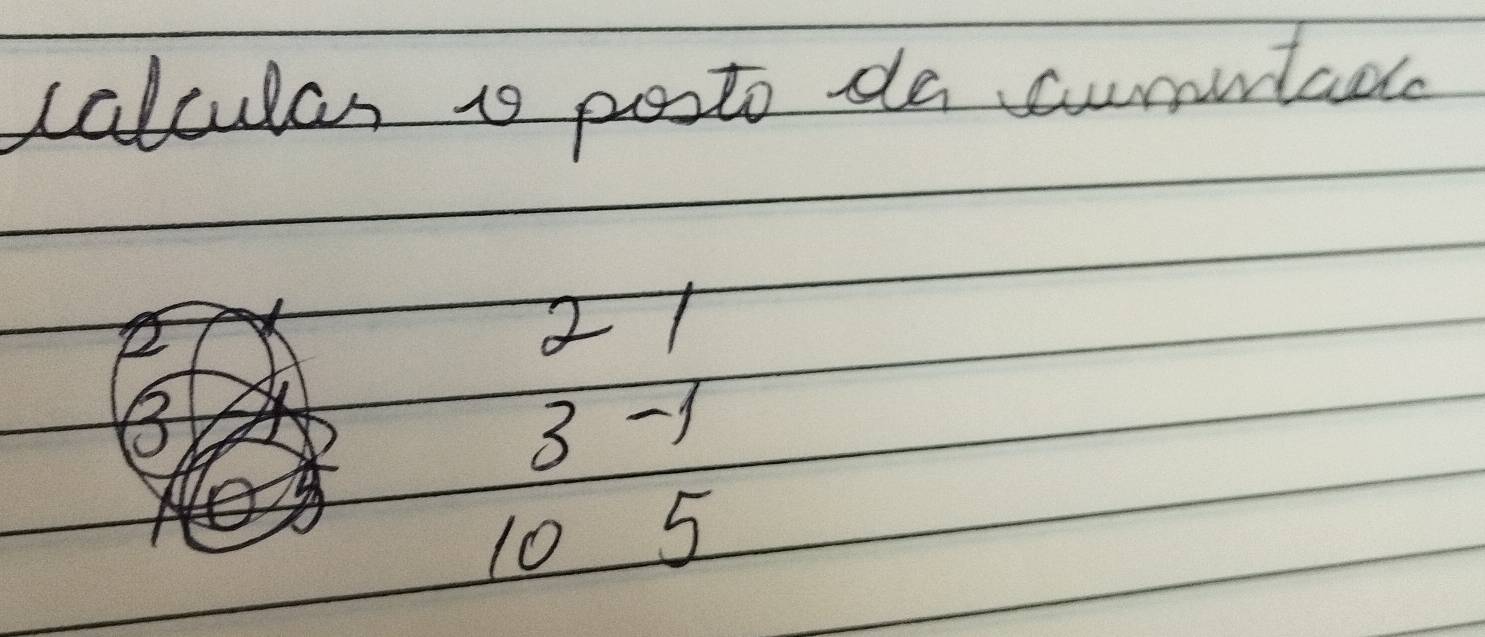 calcular o posto da aumentada
2 1
3 -1
10 5